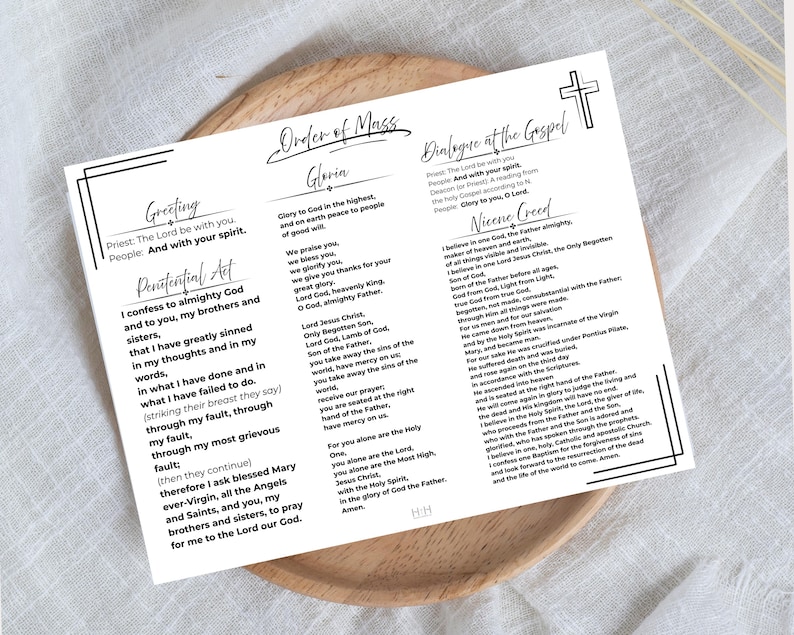 Order of Mass
Greeting
Priest: The Lord be with you.
People: And with your spirit.
Penitential Act
I confess to almighty God
and to you, my brothers and
sisters,
that I have greatly sinned
in my thoughts and in my
words,
in what I have done and in
what I have failed to do.
(striking their breast they say)
through my fault, through
my fault,
through my most grievous
fault;
(then they continue)
therefore I ask blessed Mary
ever-Virgin, all the Angels
and Saints, and you, my
brothers and sisters, to pray
for me to the Lord our God.
Gloria
Glory to God in the highest,
and on earth peace to people
of good will.
We praise you,
we bless you,
we glorify you,
we give you thanks for your
great glory.
Lord God, heavenly King,
O God, almighty Father.
Lord Jesus Christ,
Only Begotten Son,
Lord God, Lamb of God,
Son of the Father,
you take away the sins of the
world, have mercy on us;
you take away the sins of the
world,
receive our prayer;
you are seated at the right
hand of the Father,
have mercy on us.
For you alone are the Holy
One,
you alone are the Lord,
you alone are the Most High,
Jesus Christ,
with the Holy Spirit,
in the glory of God the Father.
Amen.
H:H
Dialogue at the Gospel
Priest: The Lord be with you
People: And with your spirit.
Deacon (or Priest): A reading from
the holy Gospel according to N.
People: Glory to you, O Lord.
Nicene Creed
I believe in one God, the Father almighty,
maker of heaven and earth,
of all things visible and invisible.
I believe in one Lord Jesus Christ, the Only Begotten
Son of God,
born of the Father before all ages,
God from God, Light from Light,
true God from true God,
begotten, not made, consubstantial with the Father;
through Him all things were made.
For us men and for our salvation
He came down from heaven,
and by the Holy Spirit was incarnate of the Virgin
Mary, and became man.
For our sake He was crucified under Pontius Pilate,
He suffered death and was buried,
and rose again on the third day
in accordance with the Scriptures.
He ascended into heaven
and is seated at the right hand of the Father.
He will come again in glory to judge the living and
the dead and His kingdom will have no end.
I believe in the Holy Spirit, the Lord, the giver of life,
who proceeds from the Father and the Son,
who with the Father and the Son is adored and
glorified, who has spoken through the prophets.
I believe in one, holy, Catholic and apostolic Church.
I confess one Baptism for the forgiveness of sins
and look forward to the resurrection of the dead
and the life of the world to come. Amen.